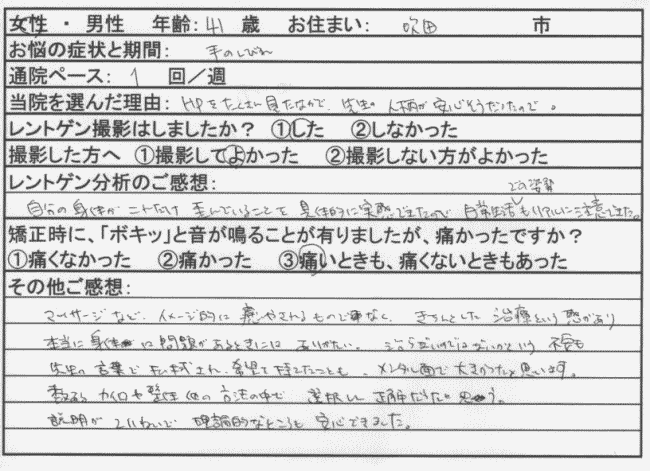 女性 ・ 男性 年齢: 41 歳 お住まい: 吹田 市
お悩の症状と期間: 手のしびれ
通院ペース: 1 回／週
当院を選んだ理由: HPをたくさん見たなかで、先生の人柄が安心そうだったので。
レントゲン撮影はしましたか？ ①した ②しなかった
撮影した方へ ①撮影してよかった ②撮影しない方がよかった
レントゲン分析のご感想:
自分の身体がこれだけ歪んでいることを具体的に実感できたので 日常生活での姿勢もリアルに注意できた。
矯正時に、「ボキッ」と音が鳴ることが有りましたが、痛かったですか？
①痛くなかった ②痛かった ③痛いときも、痛くないときもあった
その他ご感想:
マッサージなど、イメージ的に癒やされるものではなく、きちんとした治療という感があり
本当に身体に問題があるときには ありがたい。治らないのではないかという不安も
先生の言葉で 払拭され、希望を持てたことも、メンタル面で大きかったと思います。
カイロや整体 他の方法の中で 選択し 正解だったと思う。
説明が ていねいで 理論的なところも 安心できました。